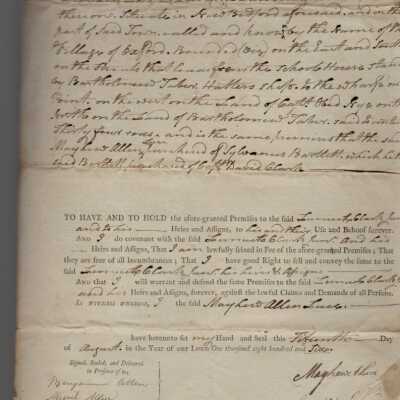 thereon. Situate in New Bedford aforesaid, and in that
part of said Town, called and known by the Name of the
Village of Oxford. Bounded (viz) on the East and South
on the Streets that leads from the School House
by Bartholomew Taber Hatters Shop. to the Wharfe on
Point. on the West on the Land of Capt
North on the Land of Bartholomew Taber. said
Thirty four rods. and is the same premises that the said
Mayhew Allen purchased of Sylvanus Bartlett. which he the
said Bartlett purchased of Capt David Clark
TO HAVE AND TO HOLD the afore-granted Premises to the said Clark Junr
and to his Heirs and Assigns, to his and their Use and Behoof forever.
And I do covenant with the said Clark Junr. And his
Heirs and Assigns, That I am lawfully seized in Fee of the afore-granted Premises; That
they are free of all Incumbrances; That I have Good Right to sell and convey the same to the
said Clark Junr. his heirs & Assigns
And that I will warrant and defend the same Premises to the said Clark
and his Heirs and Assigns, forever, against the lawful Claims and Demands of all Persons.
In witness whereof, I the said Mayhew Allen
have hereunto set my Hand and Seal this Day
of August. in the Year of our Lord One thousand eight hundred and
Signed, Sealed, and Delivered
in Presence of us,
Mayhew Allen
Benjamin Allen
Allen